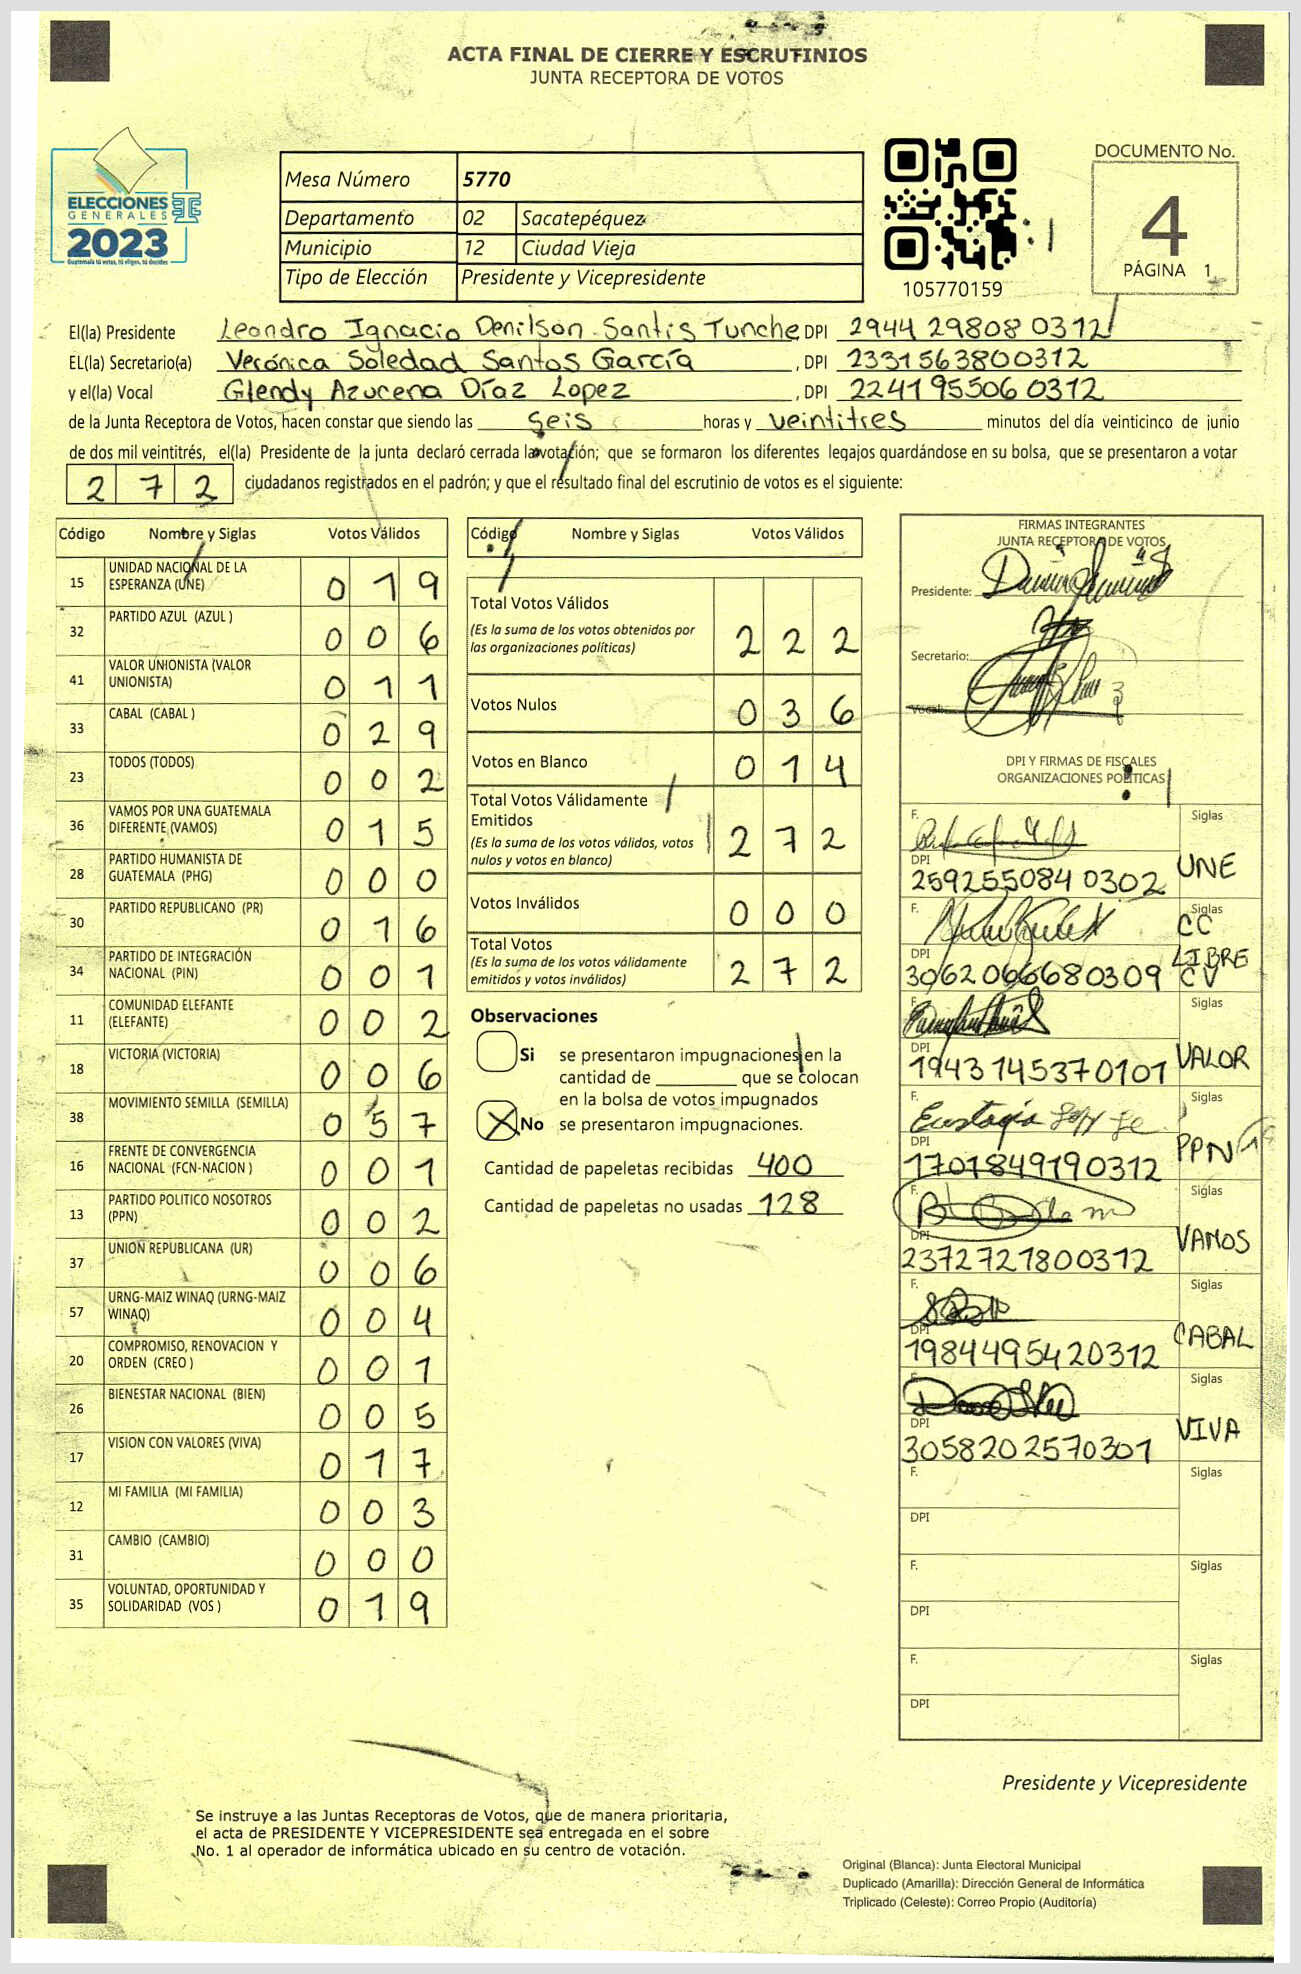 ACTA FINAL DE CIERRE Y ESCRUTINIOS
JUNTA RECEPTORA DE VOTOS
ELECCIONES
GENERALES
2023
Guatemala tú votas, tú eliges, tú decides
Mesa Número 5770
Departamento 02 Sacatepéquez
Municipio 12 Ciudad Vieja
Tipo de Elección Presidente y Vicepresidente
105770159
DOCUMENTO No.
4
PÁGINA 1
El(la) Presidente Leandro Ignacio Denilson Santis Tunche DPI 2944 29808 0312
EL(la) Secretario(a) Verónica Soledad Santos García , DPI 2331563800312
y el(la) Vocal Glendy Azucena Díaz Lopez , DPI 2241955060312
de la Junta Receptora de Votos, hacen constar que siendo las seis horas y veintitres minutos del día veinticinco de junio
de dos mil veintitrés, el(la) Presidente de la junta declaró cerrada la votación; que se formaron los diferentes legajos quardándose en su bolsa, que se presentaron a votar
2 7 2 ciudadanos registrados en el padrón; y que el resultado final del escrutinio de votos es el siguiente:
Código Nombre y Siglas Votos Válidos
15 UNIDAD NACIONAL DE LA
ESPERANZA (UNE) 0 1 9
32 PARTIDO AZUL (AZUL ) 0 0 6
41 VALOR UNIONISTA (VALOR
UNIONISTA) 0 1 1
33 CABAL (CABAL ) 0 2 9
23 TODOS (TODOS) 0 0 2
36 VAMOS POR UNA GUATEMALA
DIFERENTE (VAMOS) 0 1 5
28 PARTIDO HUMANISTA DE
GUATEMALA (PHG) 0 0 0
30 PARTIDO REPUBLICANO (PR) 0 1 6
34 PARTIDO DE INTEGRACIÓN
NACIONAL (PIN) 0 0 1
11 COMUNIDAD ELEFANTE
(ELEFANTE) 0 0 2
18 VICTORIA (VICTORIA) 0 0 6
38 MOVIMIENTO SEMILLA (SEMILLA) 0 5 7
16 FRENTE DE CONVERGENCIA
NACIONAL (FCN-NACION ) 0 0 1
13 PARTIDO POLITICO NOSOTROS
(PPN) 0 0 2
37 UNION REPUBLICANA (UR) 0 0 6
57 URNG-MAIZ WINAQ (URNG-MAIZ
WINAQ) 0 0 4
20 COMPROMISO, RENOVACION Y
ORDEN (CREO ) 0 0 1
26 BIENESTAR NACIONAL (BIEN) 0 0 5
17 VISION CON VALORES (VIVA) 0 1 7
12 MI FAMILIA (MI FAMILIA) 0 0 3
31 CAMBIO (CAMBIO) 0 0 0
35 VOLUNTAD, OPORTUNIDAD Y
SOLIDARIDAD (VOS ) 0 1 9
Código Nombre y Siglas Votos Válidos
Total Votos Válidos
(Es la suma de los votos obtenidos por
las organizaciones políticas) 2 2 2
Votos Nulos 0 3 6
Votos en Blanco 0 1 4
Total Votos Válidamente
Emitidos
(Es la suma de los votos válidos, votos
nulos y votos en blanco) 2 7 2
Votos Inválidos 0 0 0
Total Votos
(Es la suma de los votos válidamente
emitidos y votos inválidos) 2 7 2
Observaciones
Si se presentaron impugnaciones en la
cantidad de ________ que se colocan
en la bolsa de votos impugnados
X No se presentaron impugnaciones.
Cantidad de papeletas recibidas 400
Cantidad de papeletas no usadas 128
FIRMAS INTEGRANTES
JUNTA RECEPTORA DE VOTOS
Presidente:
Secretario:
Vocal:
DPI Y FIRMAS DE FISCALES
ORGANIZACIONES POLÍTICAS
F. Siglas
DPI
2592550840302 UNE
F. Siglas
CC
LIBRE
CV
DPI
3062066680309
F. Siglas
DPI
1943145370101 VALOR
F. Eustaqia Siglas
DPI
1701849190312 PPN
F. Siglas
DPI
2372721800312 VAMOS
F. Siglas
DPI
1984495420312 CABAL
F. Siglas
DPI
3058202570301 VIVA
F. Siglas
DPI
F. Siglas
DPI
F. Siglas
DPI
Presidente y Vicepresidente
Se instruye a las Juntas Receptoras de Votos, que de manera prioritaria,
el acta de PRESIDENTE Y VICEPRESIDENTE sea entregada en el sobre
No. 1 al operador de informática ubicado en su centro de votación.
Original (Blanca): Junta Electoral Municipal
Duplicado (Amarilla): Dirección General de Informática
Triplicado (Celeste): Correo Propio (Auditoría)